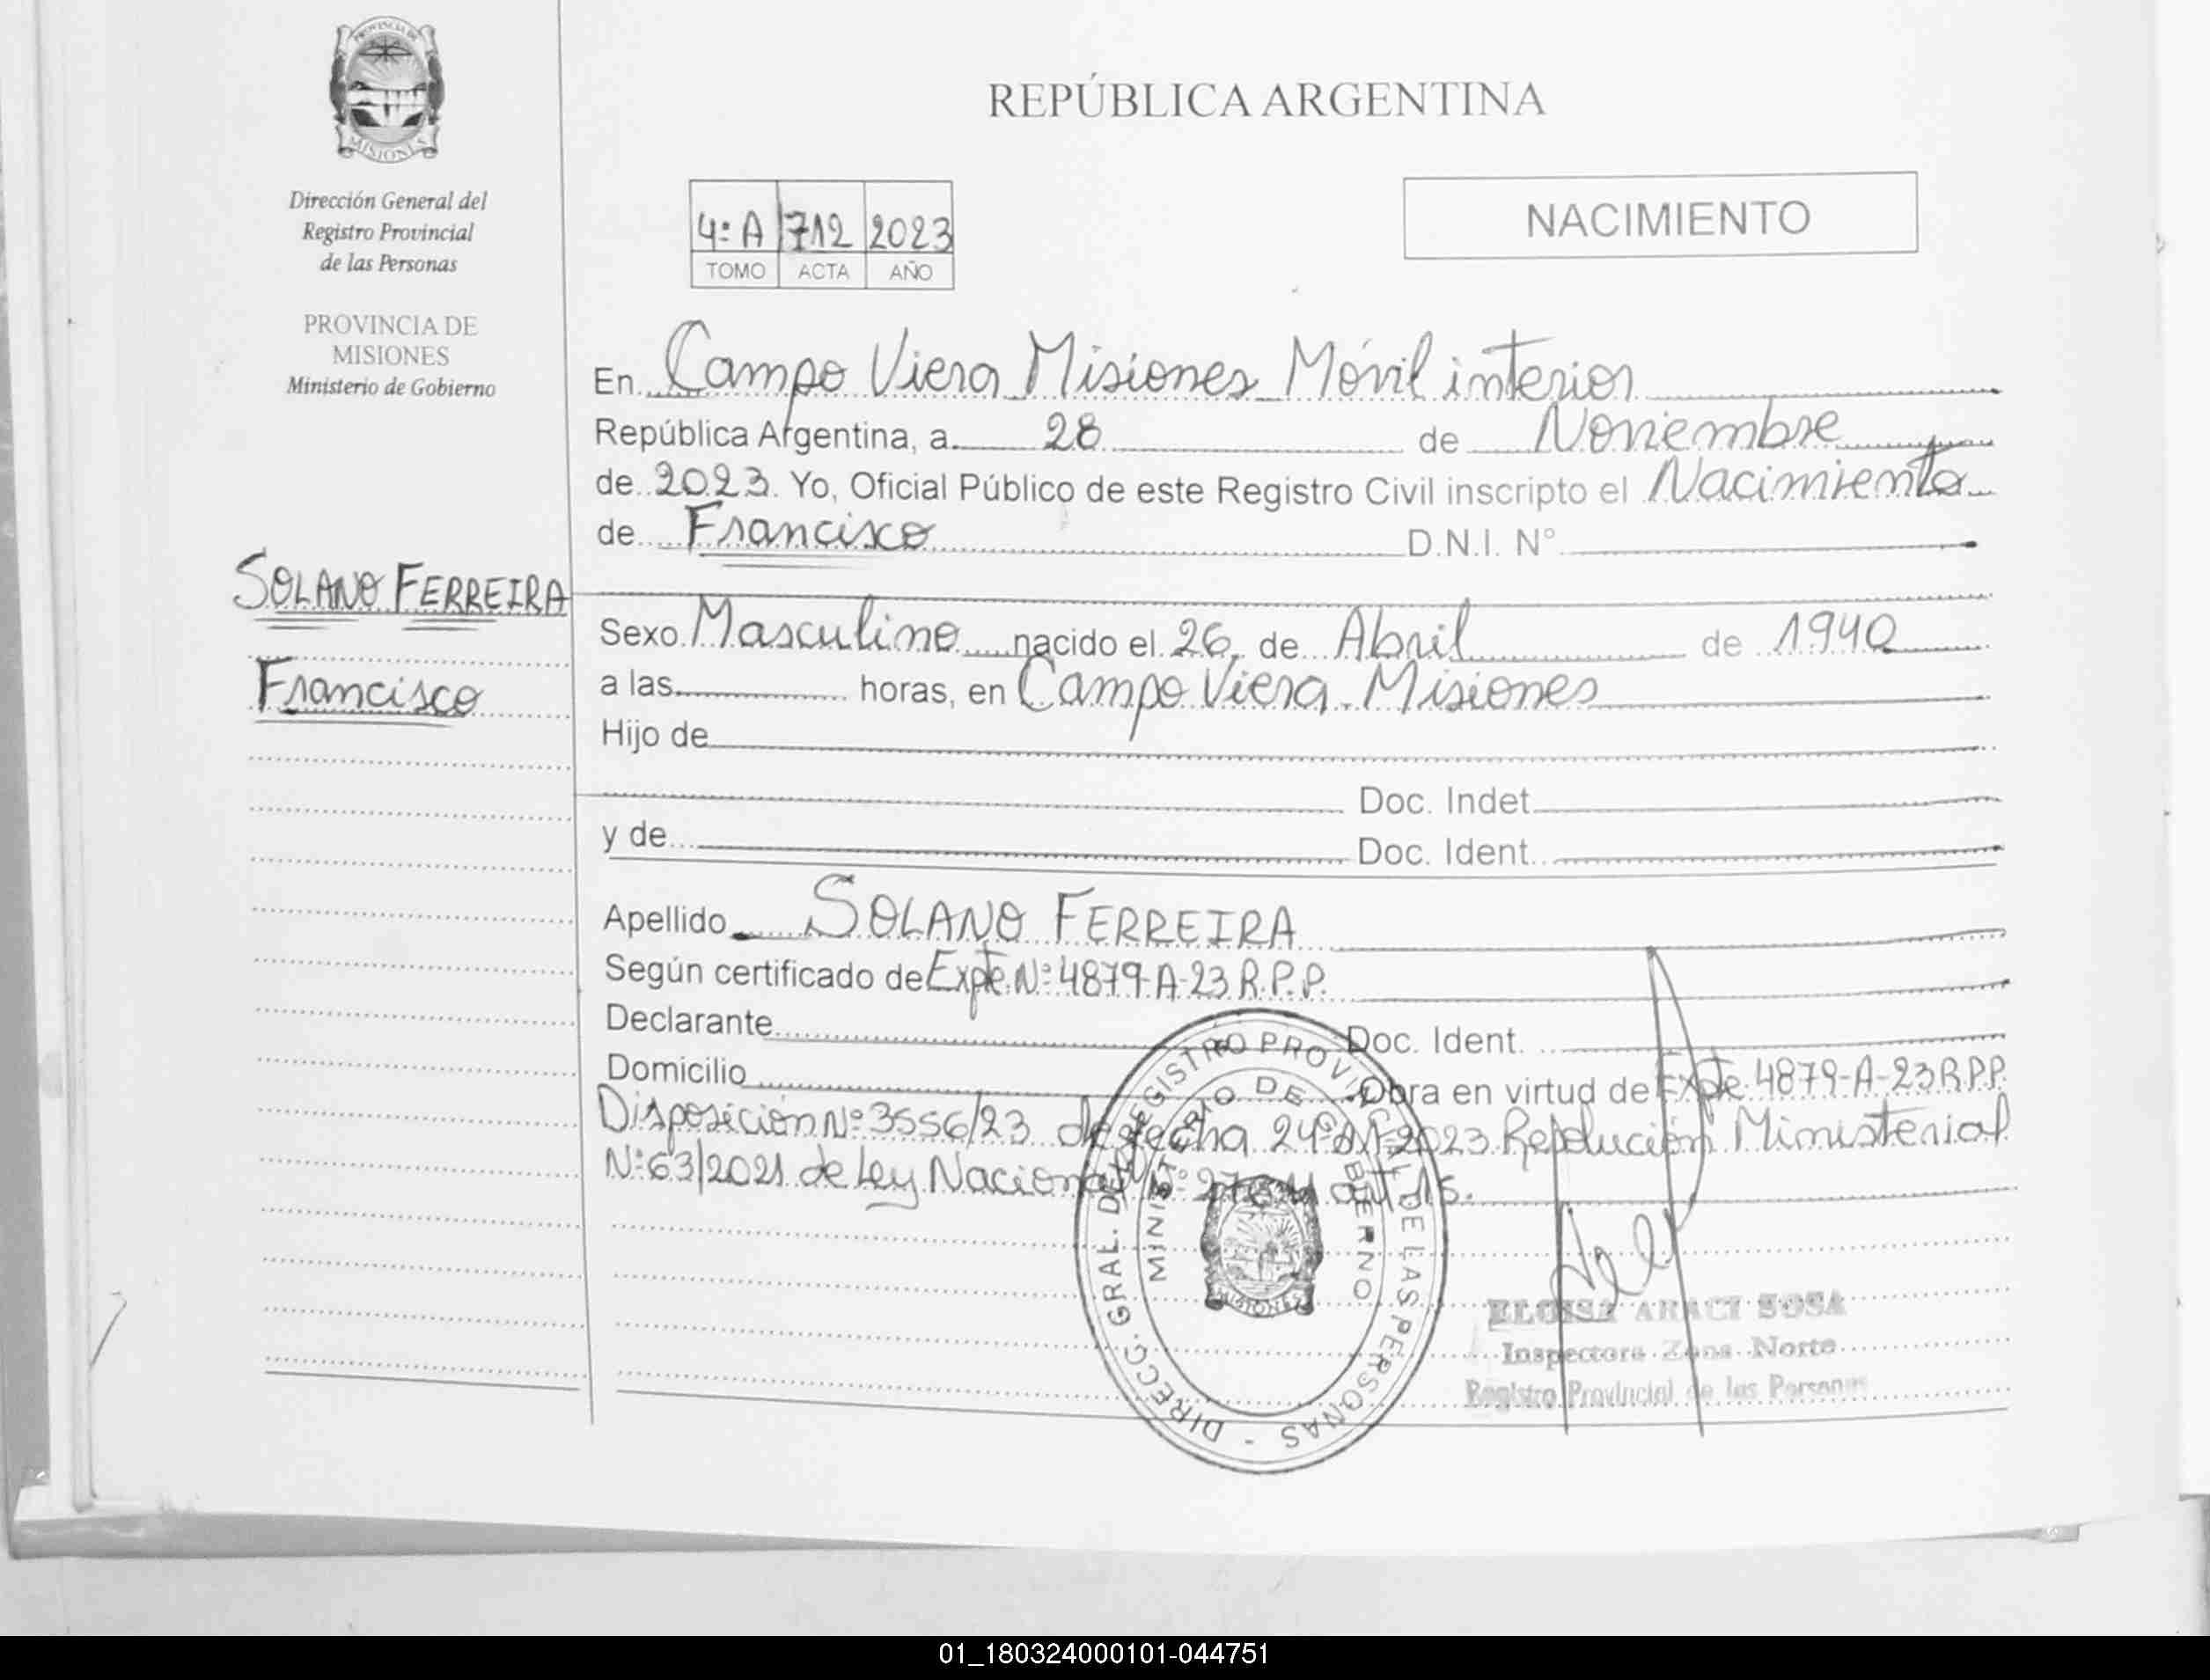 PROVINCIA DE
MISIONES
Dirección General del
Registro Provincial
de las Personas
PROVINCIA DE
MISIONES
Ministerio de Gobierno
SOLANO FERREIRA
Francisco
REPÚBLICA ARGENTINA
4º A 712 2023
TOMO ACTA AÑO
NACIMIENTO
En Campo Viera Misiones Móvil interior
República Argentina, a 28 de Noviembre
de 2023. Yo, Oficial Público de este Registro Civil inscripto el Nacimiento
de Francisco D.N.I. N°
Sexo Masculino nacido el 26 de Abril de 1940
a las horas, en Campo Viera - Misiones
Hijo de
Doc. Indet.
y de Doc. Ident.
Apellido SOLANO FERREIRA
Según certificado de Expte. Nº 4879-A-23 R.P.P.
Declarante Doc. Ident.
Domicilio Obra en virtud de Expte. 4879-A-23 R.P.P.
Disposición Nº 3556/23 de fecha 24-01-2023 Resolución Ministerial
Nº 63/2021 de Ley Nacional Nº art 15.
DIRECC. GRAL. DEL REGISTRO PROVINCIAL DE LAS PERSONAS -
MINISTERIO DE GOBIERNO
MISIONES
ELOISA ARACI SOSA
Inspectora Zona Norte
Registro Provincial de las Personas
01_180324000101-044751